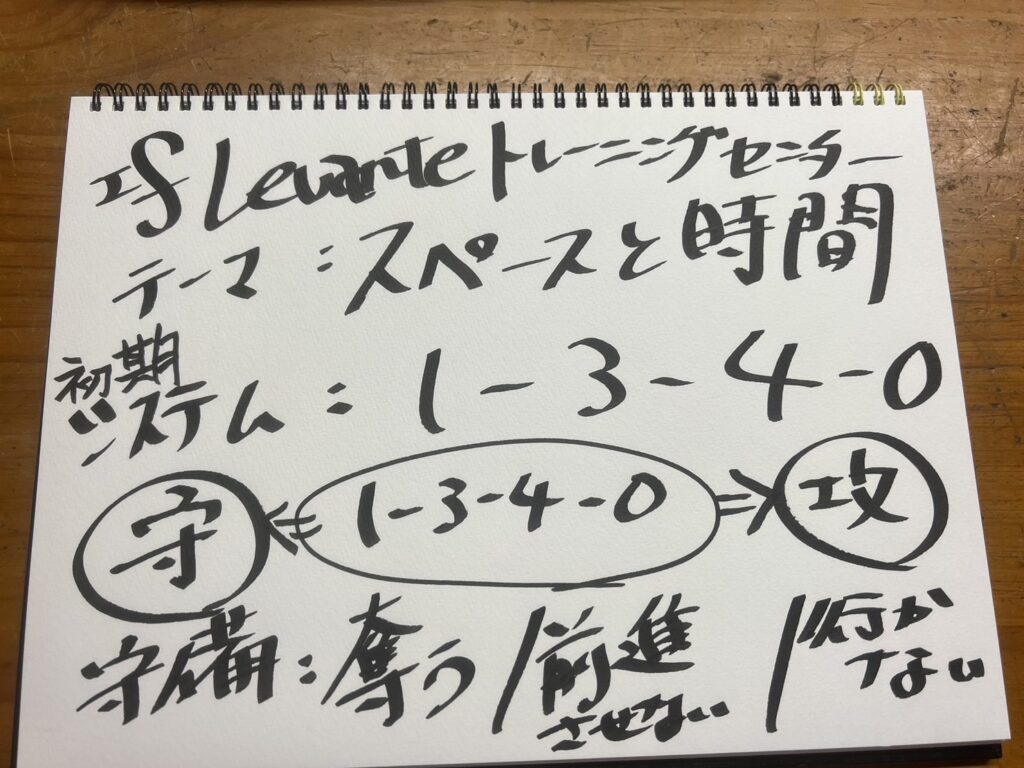 Levante トレーニングセンター
テーマ:スペースと時間
初期
システム:1-3-4-0
守 ⇐ 1-3-4-0 ⇒ 攻
守備:奪う/前進させない/行か
ない